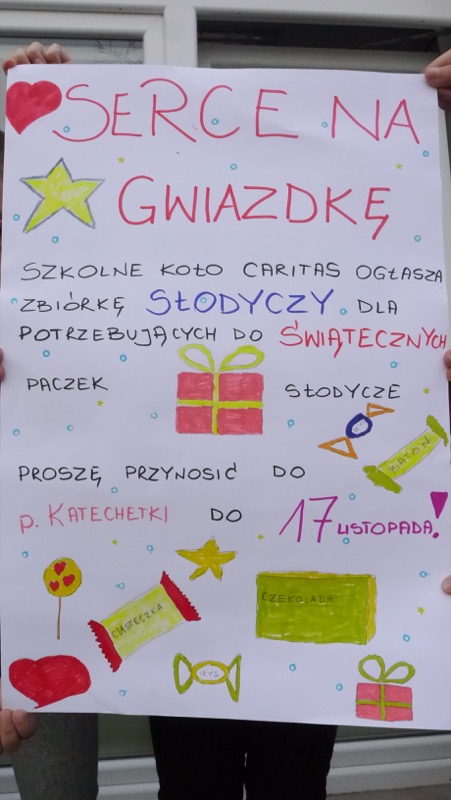 SERCE NA
GWIAZDKĘ
SZKOLNE KOŁO CARITAS OGŁASZA
ZBIÓRKĘ SŁODYCZY DLA
POTRZEBUJĄCYCH DO ŚWIĄTECZNYCH
PACZEK SŁODYCZE
BATON
PROSZĘ PRZYNOSIĆ DO
p. KATECHETKI DO 17 LISTOPADA!
CZEKOLADA
CIASTECZKA
IRYS